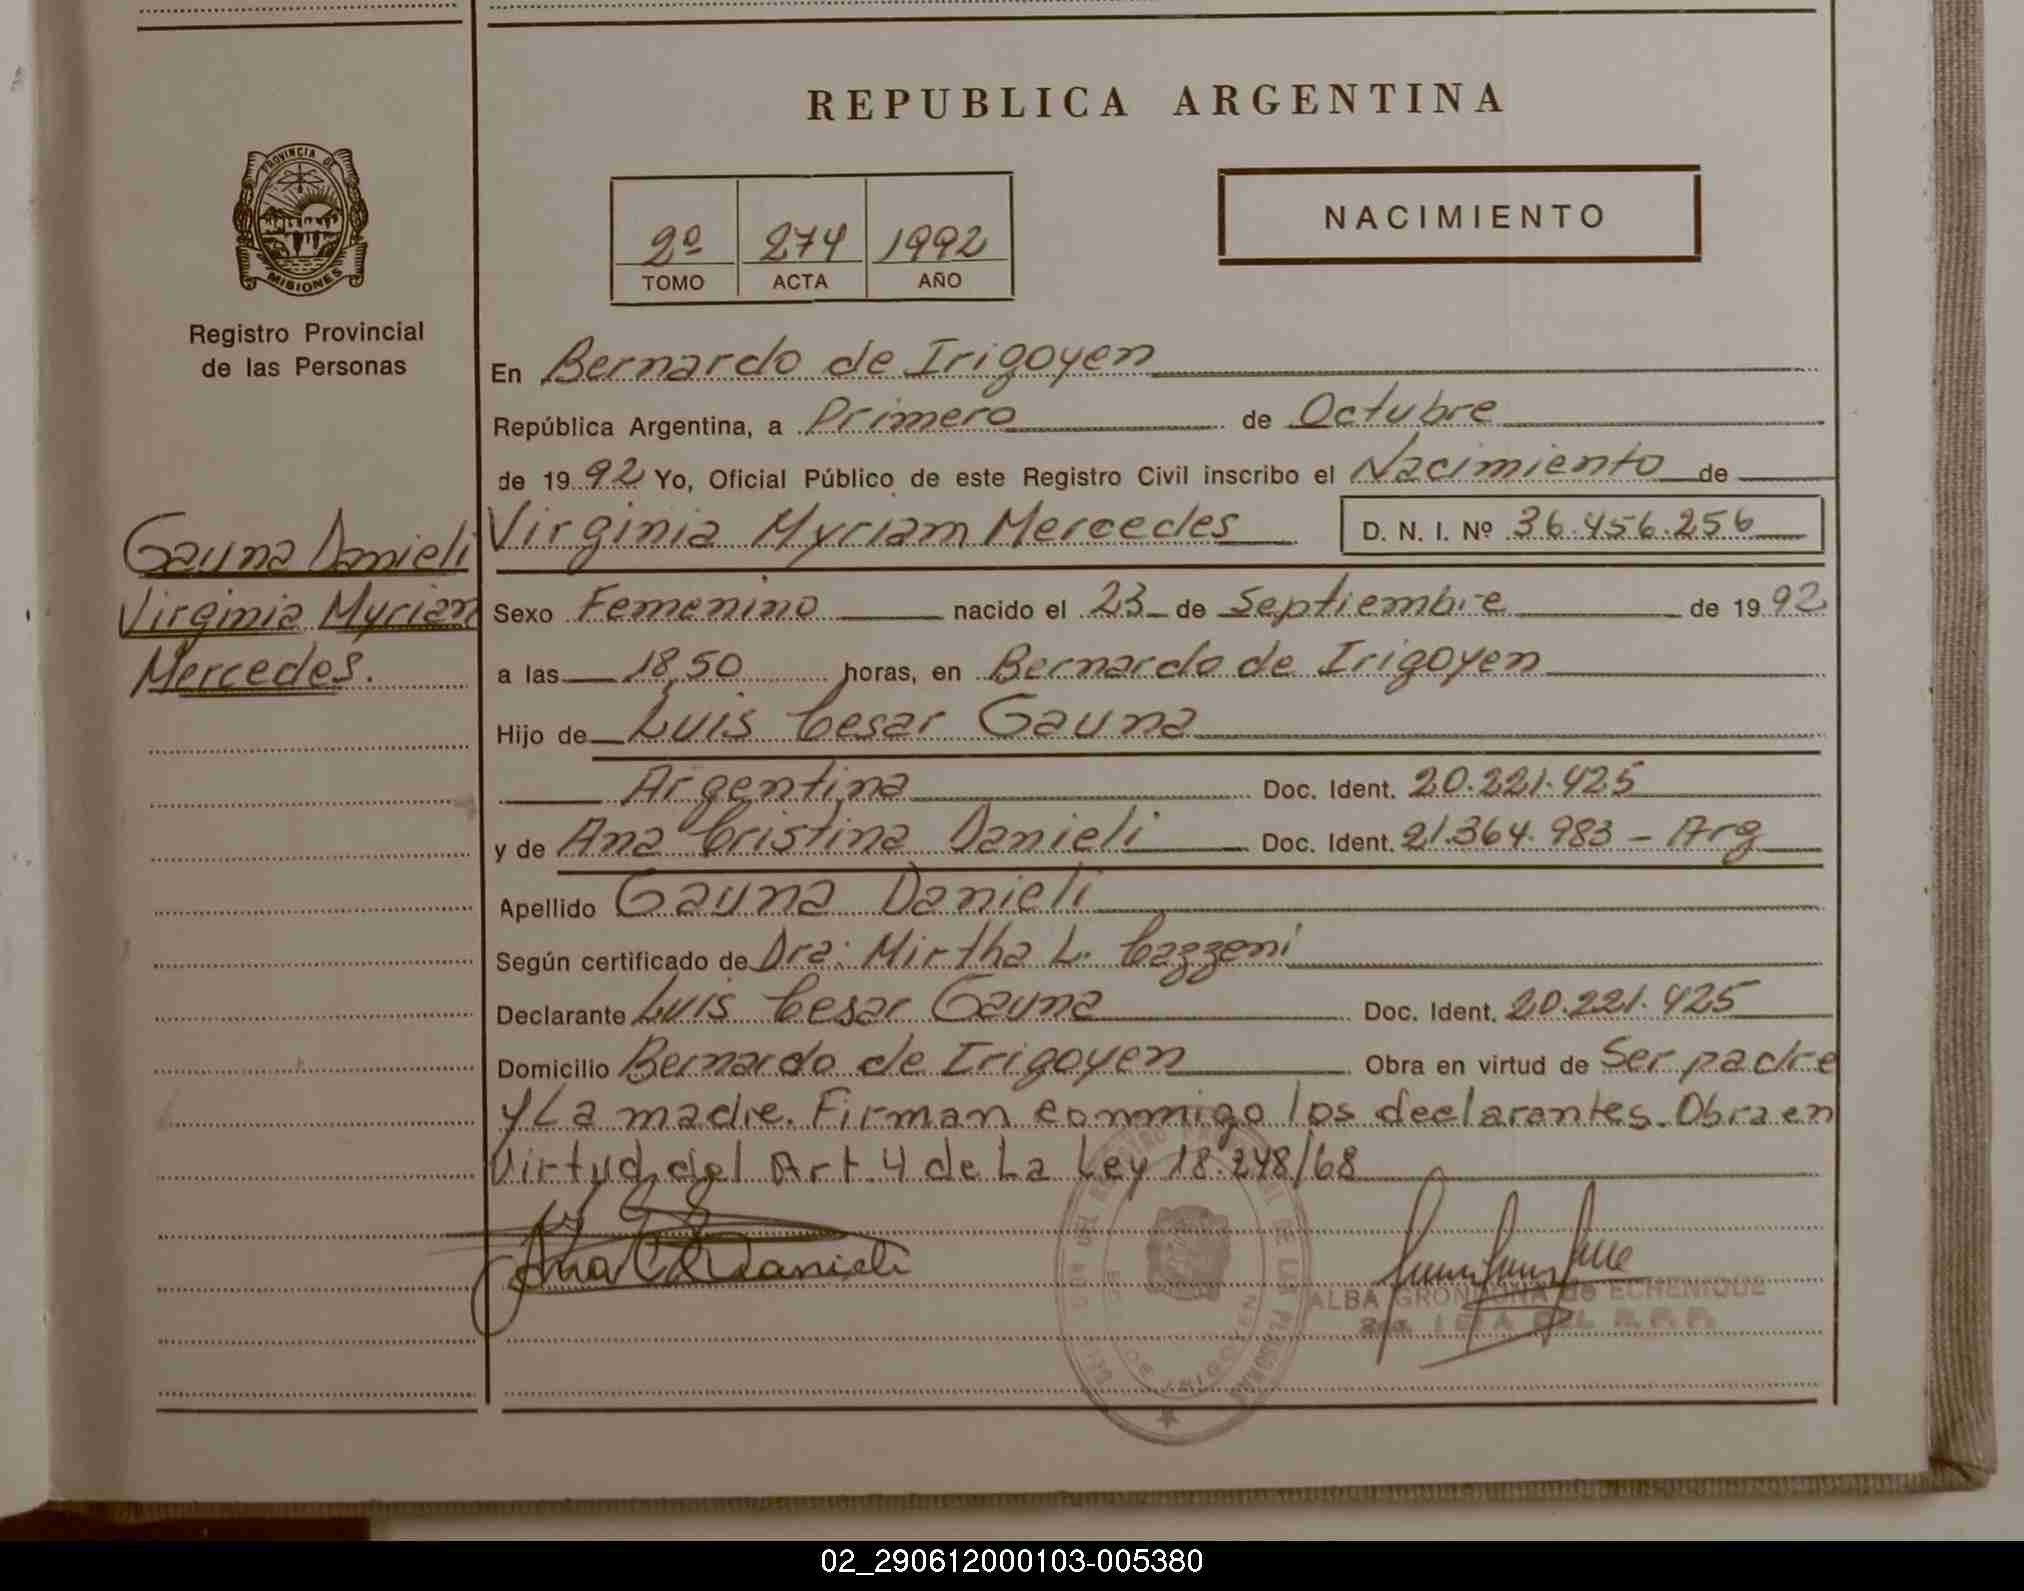 REPUBLICA ARGENTINA
PROVINCIA DE
MISIONES
Registro Provincial
de las Personas
2º 274 1992
TOMO ACTA AÑO
NACIMIENTO
En Bernardo de Irigoyen
República Argentina, a Primero de Octubre
de 1992 Yo, Oficial Público de este Registro Civil inscribo el Nacimiento de
Gauna Danieli
Virginia Myriam
Mercedes.
Virginia Myriam Mercedes D. N. I. Nº 36.456.256
Sexo Femenino nacido el 23 de Septiembre de 1992
a las 18,50 horas, en Bernardo de Irigoyen
Hijo de Luis Cesar Gauna
Argentina Doc. Ident. 20.221.425
y de Ana Cristina Danieli Doc. Ident. 21.364.983 - Arg
Apellido Gauna Danieli
Según certificado de Dra: Mirtha L. Cazzeni
Declarante Luis Cesar Gauna Doc. Ident. 20.221.425
Domicilio Bernardo de Irigoyen Obra en virtud de Ser padre
y La madre. Firman conmigo los declarantes. Obra en
Virtud del Art. 4 de La Ley 18.248/68
Ana C Danieli
ALBA GRONDONA de ECHENIQUE
DEL R.P.P.
02_290612000103-005380